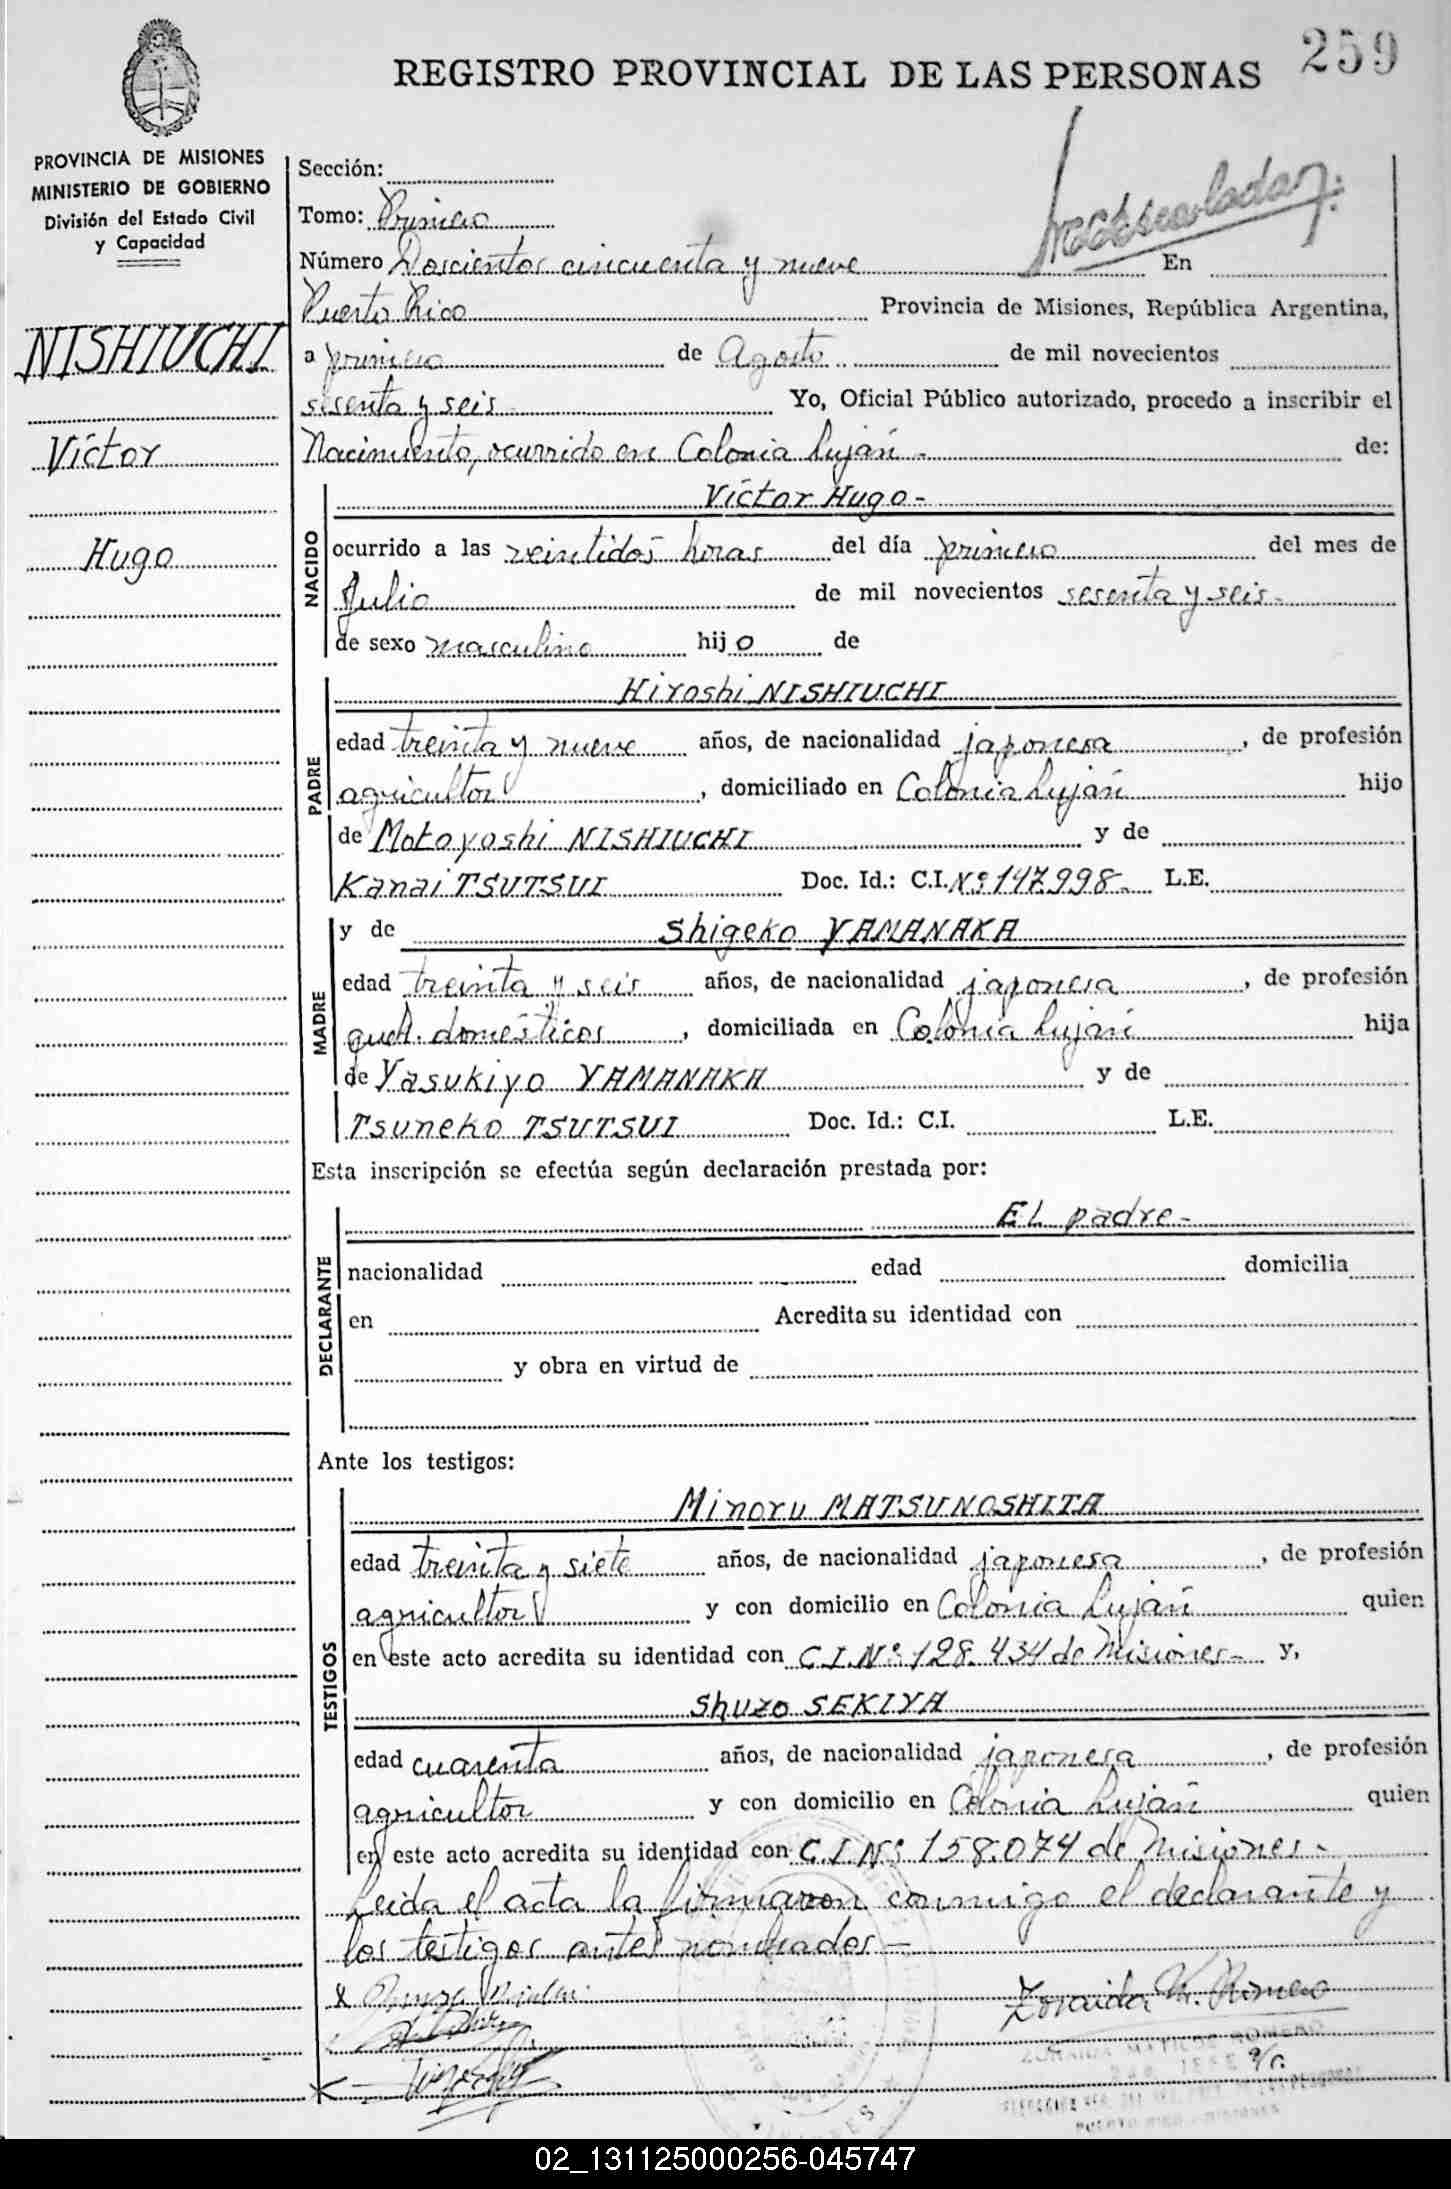 259
REGISTRO PROVINCIAL DE LAS PERSONAS
PROVINCIA DE MISIONES
MINISTERIO DE GOBIERNO
División del Estado Civil
y Capacidad
NISHIUCHI
Víctor
Hugo
Sección:
Tomo: Primero
Número Doscientos cincuenta y nueve En
Puerto Rico Provincia de Misiones, República Argentina,
a primero de Agosto de mil novecientos
sesenta y seis Yo, Oficial Público autorizado, procedo a inscribir el
Nacimiento, ocurrido en Colonia Luján - de:
NACIDO
Víctor Hugo -
ocurrido a las veintidós horas del día primero del mes de
Julio de mil novecientos sesenta y seis -
de sexo masculino hijo de
PADRE
Hiroshi NISHIUCHI
edad treinta y nueve años, de nacionalidad japonesa, de profesión
agricultor, domiciliado en Colonia Luján hijo
de Motoyoshi NISHIUCHI y de
Kanai TSUTSUI Doc. Id.: C.I. Nº 147.998- L.E.
MADRE
y de Shigeko YAMANAKA
edad treinta y seis años, de nacionalidad japonesa, de profesión
queh. domésticos, domiciliada en Colonia Luján hija
de Yasukiyo YAMANAKA y de
Tsuneko TSUTSUI Doc. Id.: C.I. L.E.
Esta inscripción se efectúa según declaración prestada por:
DECLARANTE
El padre -
nacionalidad edad domicilia
en Acredita su identidad con
y obra en virtud de
Ante los testigos:
TESTIGOS
Minoru MATSUNOSHITA
edad treinta y siete años, de nacionalidad japonesa, de profesión
agricultor y con domicilio en Colonia Luján quien
en este acto acredita su identidad con C.I. Nº 128.434 de Misiones - y,
Shuzo SEKIYA
edad cuarenta años, de nacionalidad japonesa, de profesión
agricultor y con domicilio en Colonia Luján quien
en este acto acredita su identidad con C.I. Nº 158.074 de Misiones -
Leida el acta la firmaron conmigo el declarante y
los testigos antes nombrados -
Zoraida M. Romero
PUERTO RICO - MISIONES
02_131125000256-045747